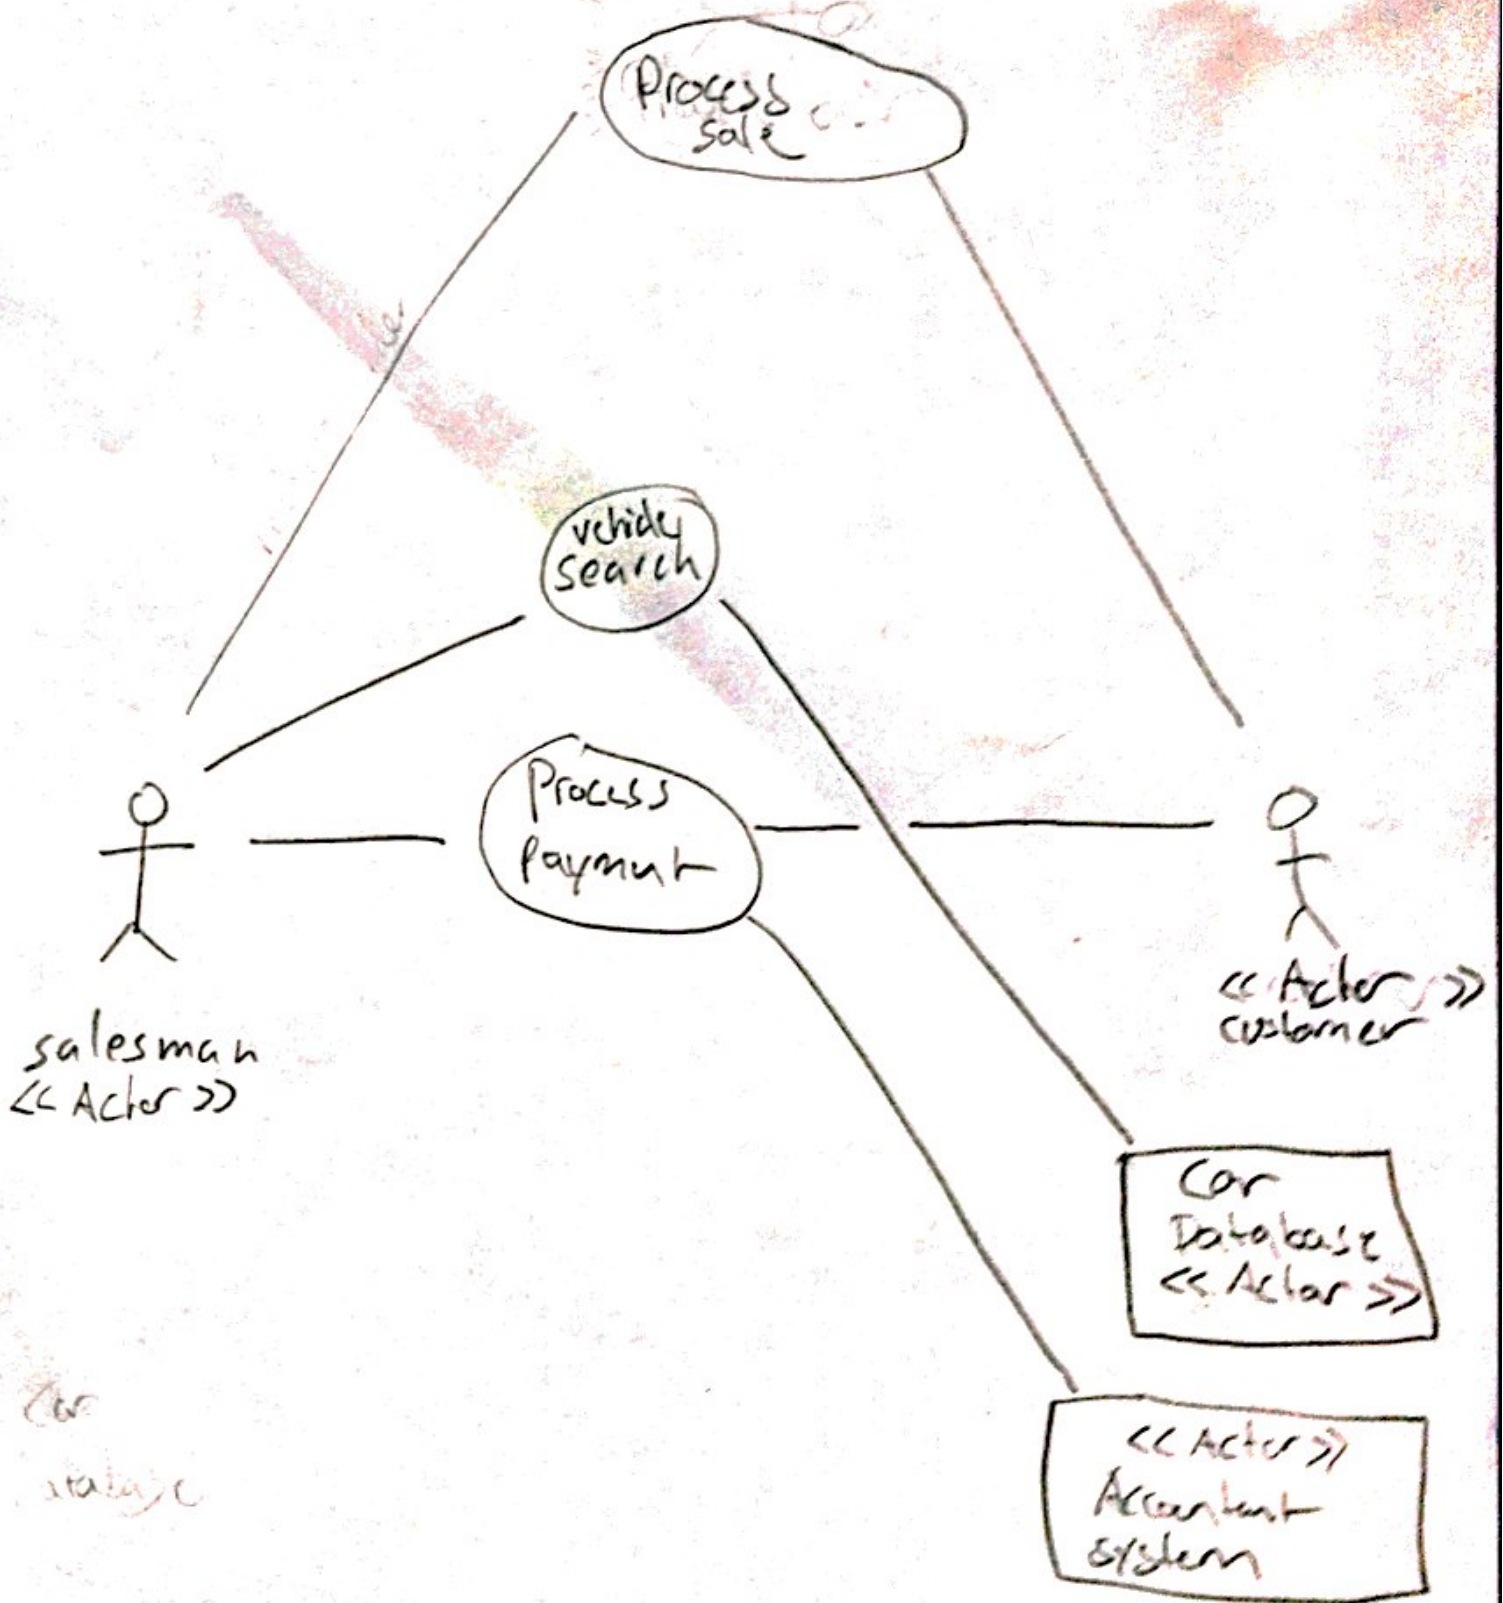 Process
sale
vehicle
search
Process
Payment
salesman
<< Actor >>
<< Actor >>
customer
Car
Database
<< Actor >>
<< Actor >>
Accountant
system
Car